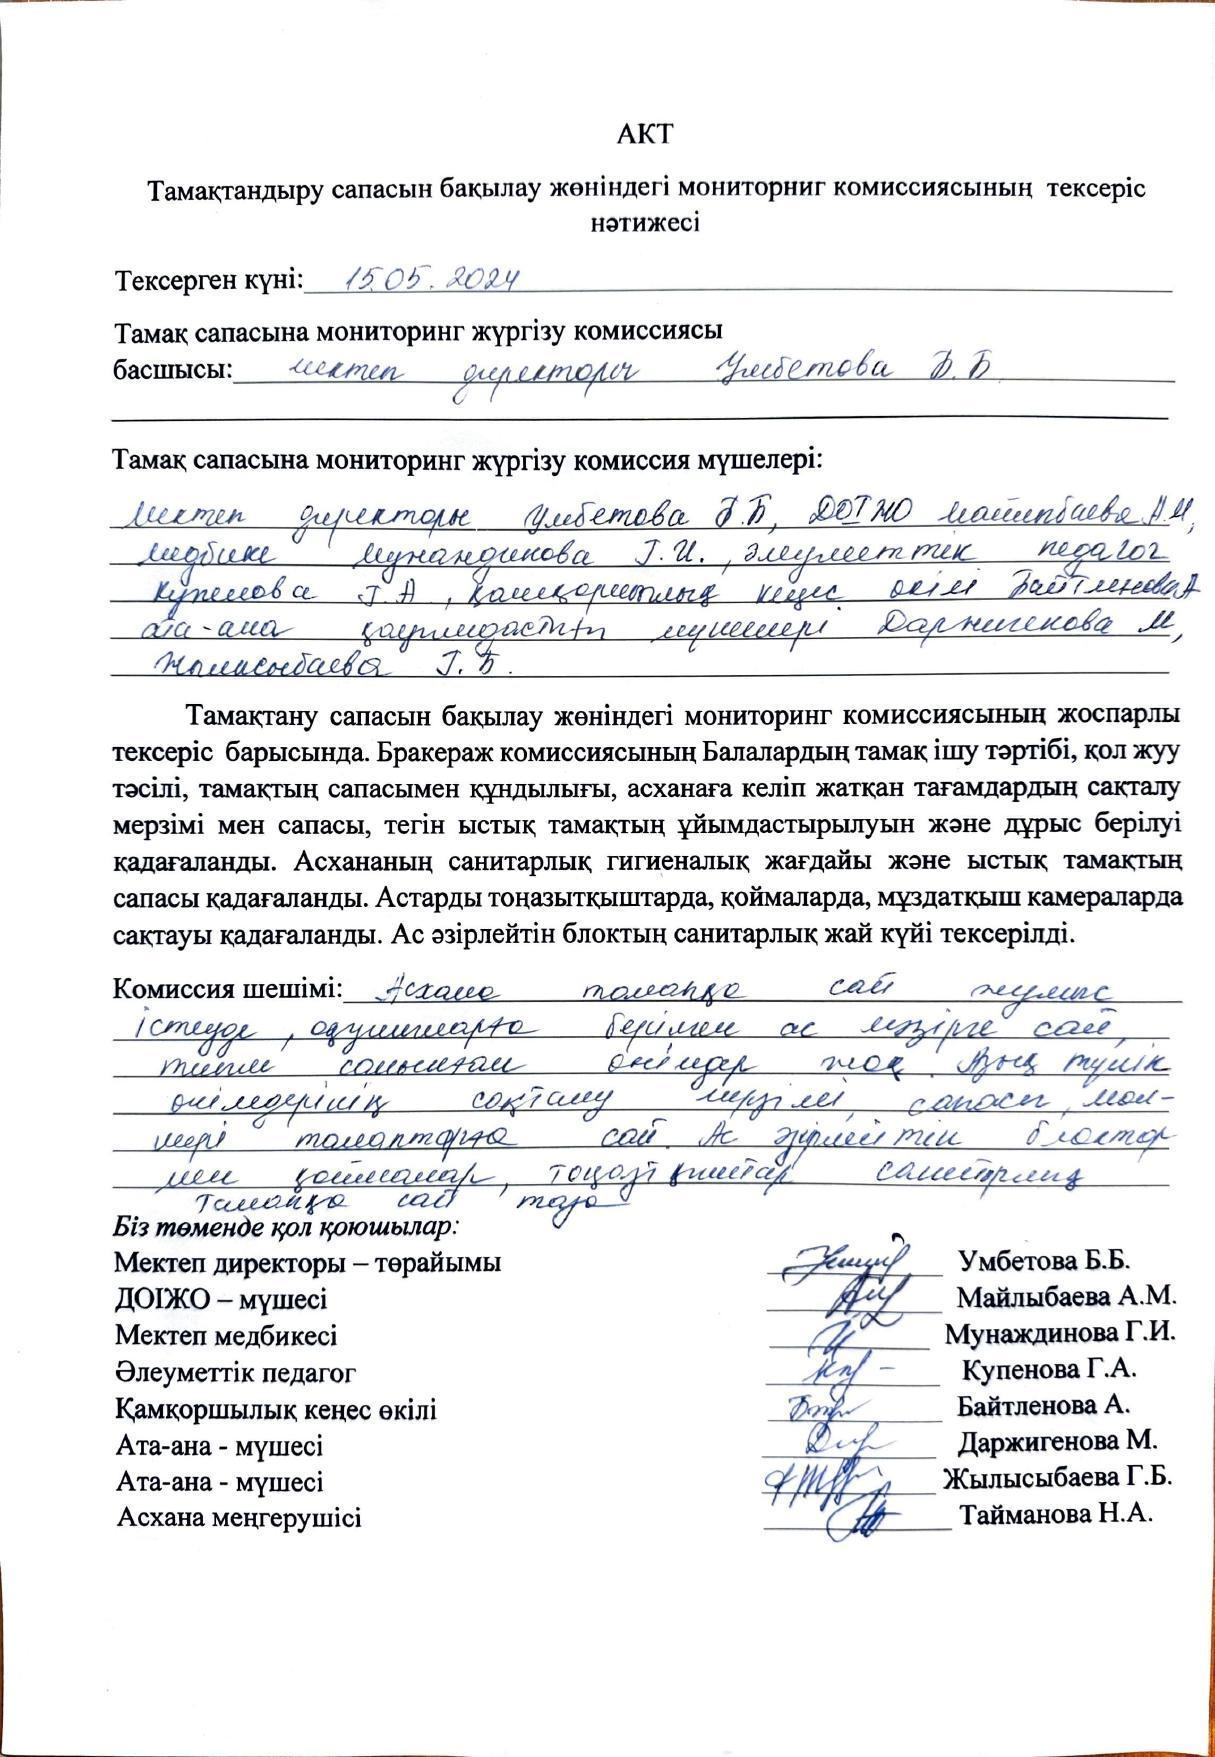 АКТ
Тамақтандыру сапасын бақылау жөніндегі мониторниг комиссиясының тексеріс
нәтижесі
Тексерген күні: 15.05.2024
Тамақ сапасына мониторинг жүргізу комиссиясы
басшысы: мектеп директоры Умбетова Б.Б
Тамақ сапасына мониторинг жүргізу комиссия мүшелері:
мектеп директоры Умбетова Б.Б, ДОІЖО Майлыбаева А.М,
медбике Мунаждинова Г.И., әлеуметтік педагог
Купенова Г.А, қамқоршылық кеңес өкілі Байтленова А
ата-ана қауымдастығы мүшелері Даржигенова М,
Жылысыбаева Г.Б.
Тамақтану сапасын бақылау жөніндегі мониторинг комиссиясының жоспарлы
тексеріс барысында. Бракераж комиссиясының Балалардың тамақ ішу тәртібі, қол жуу
тәсілі, тамақтың сапасымен құндылығы, асханаға келіп жатқан тағамдардың сақталу
мерзімі мен сапасы, тегін ыстық тамақтың ұйымдастырылуын және дұрыс берілуі
қадағаланды. Асхананың санитарлық гигиеналық жағдайы және ыстық тамақтың
сапасы қадағаланды. Астарды тоңазытқыштарда, қоймаларда, мұздатқыш камераларда
сақтауы қадағаланды. Ас әзірлейтін блоктың санитарлық жай күйі тексерілді.
Комиссия шешімі: Асхана талапқа сай жұмыс
істеуде, оқушыларға берілген ас мәзірге сай,
тыйым салынған өнімдер жоқ. Азық түлік
өнімдерінің сақталу мерзімі, сапасы, мөл-
шері талаптарға сай. Ас әзірлейтін блоктар
мен қоймалар, тоңазытқыштар санитарлық
талапқа сай таза
Біз төменде қол қоюшылар:
Мектеп директоры – төрайымы Умбетова Б.Б.
ДОІЖО – мүшесі Майлыбаева А.М.
Мектеп медбикесі Мунаждинова Г.И.
Әлеуметтік педагог Купенова Г.А.
Қамқоршылық кеңес өкілі Байтленова А.
Ата-ана - мүшесі Даржигенова М.
Ата-ана - мүшесі Жылысыбаева Г.Б.
Асхана меңгерушісі Тайманова Н.А.